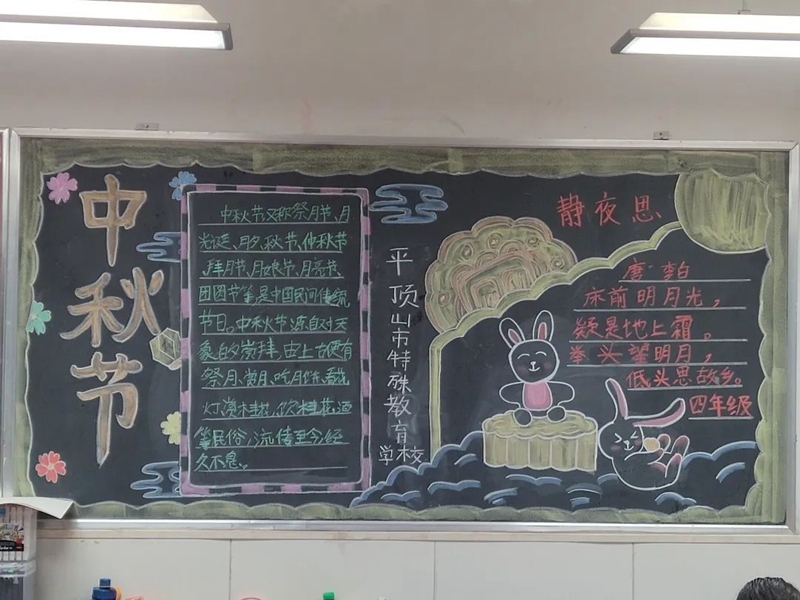 中秋节
中秋节又称祭月节、月
光诞、月夕、秋节、仲秋节
拜月节、月娘节、月亮节、
团圆节等,是中国民间传统
节日。中秋节源自对天
象的崇拜,由上古
祭月、赏月、吃月饼、看花
灯、赏桂花、饮桂花酒
等民俗,流传至今经
久不息。
平顶山市特殊教育
学校
静夜思
唐 李白
床前明月光,
疑是地上霜。
举头望明月,
低头思故乡。
四年级